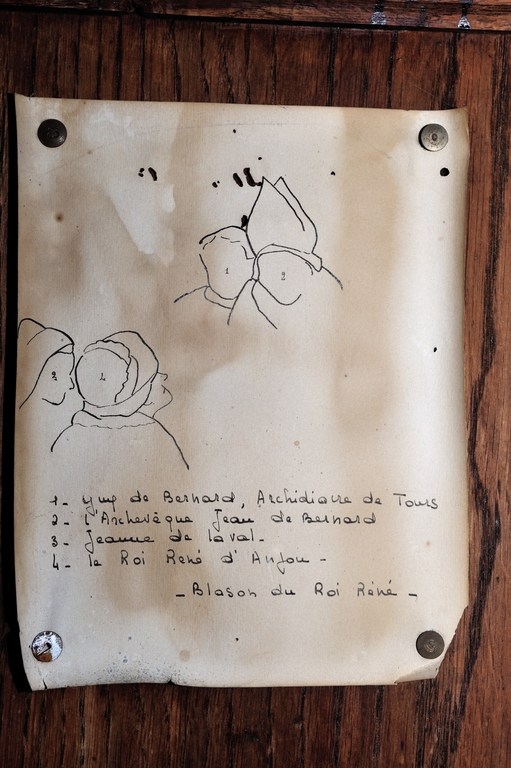 1
2
3
4
1- Guy de Bernard, Archidiacre de Tours
2- L'Archevêque Jean de Bernard
3- Jeanne de Laval.
4- le Roi René d'Anjou -
- Blason du Roi Réné -